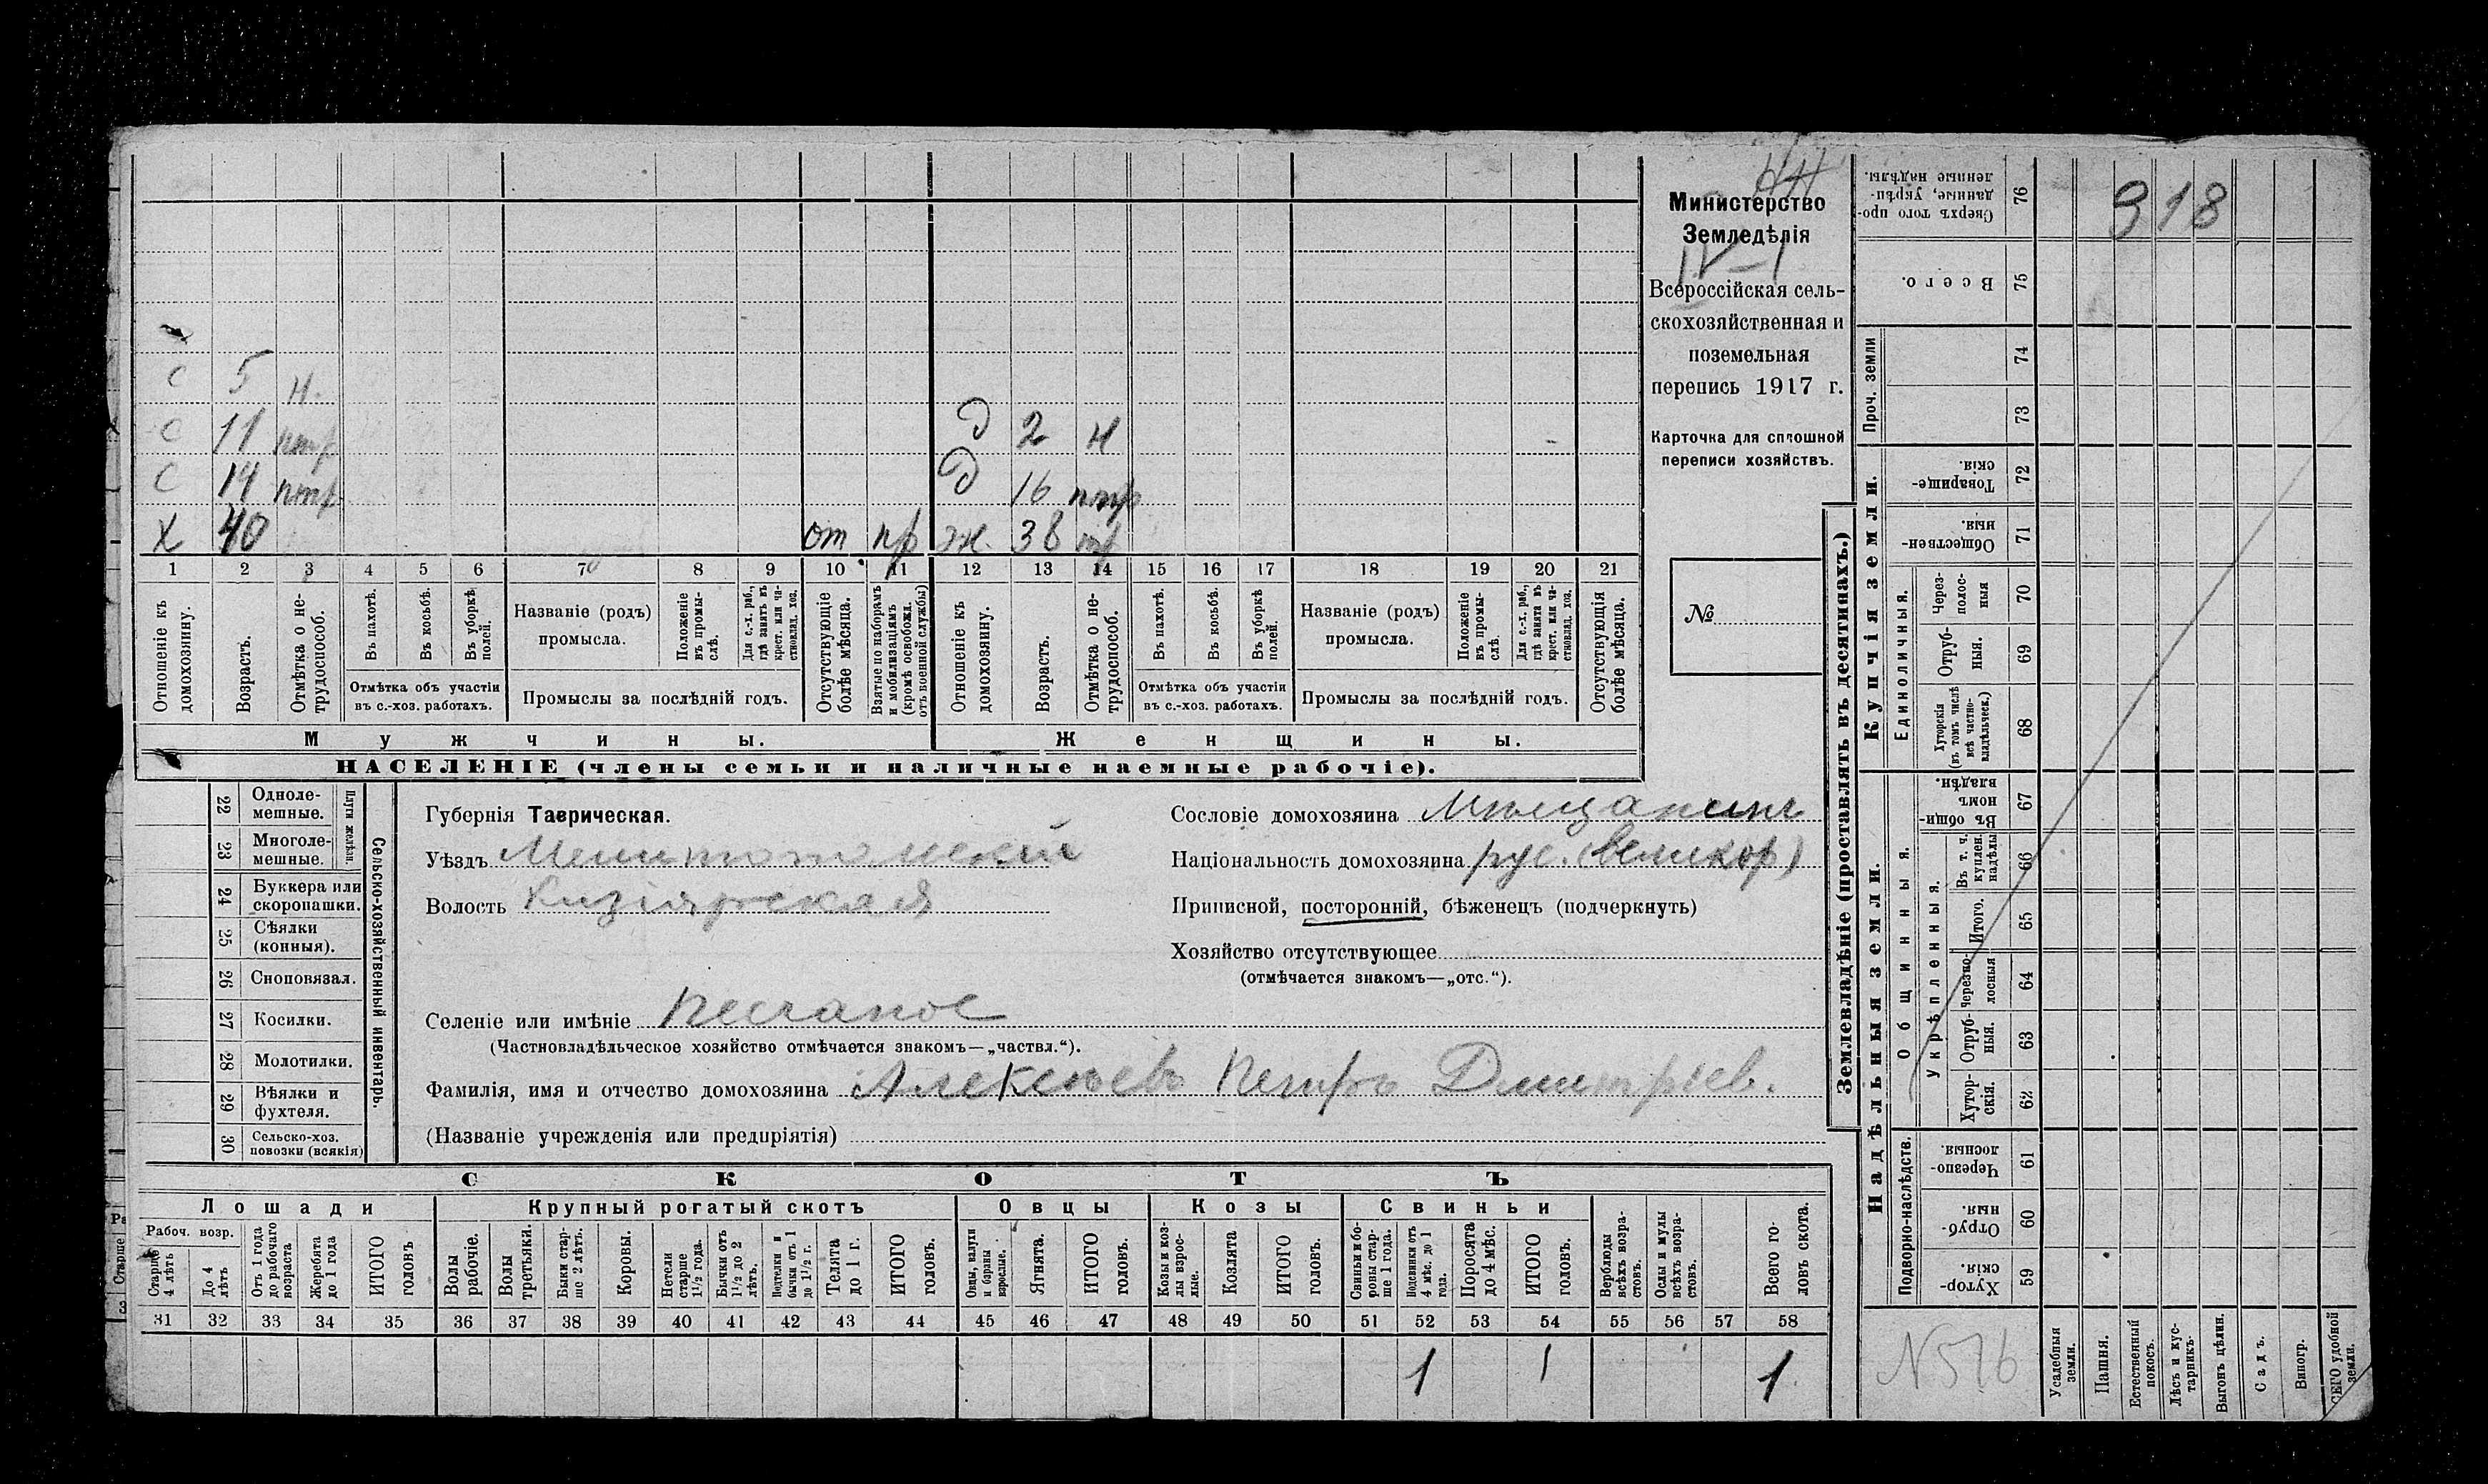 НН
Министерство
Земледѣлія
IV–1
Всероссійская сель-
скохозяйственная и
поземельная
перепись 1917 г.
Карточка для сплошной
переписи хозяйствъ.
№
с 5 н.
с 11 нтр
с 14 нтр
х 40 от пр
д 2 н
д 16 нтр
ж. 38 тр
1 2 3 4 5 6 7 8 9 10 11 12 13 14 15 16 17 18 19 20 21
Отношеніе къ домохозяину.
Возрастъ.
Отмѣтка о не-трудоспособ.
Въ пахотѣ.
Въ косьбѣ.
Въ уборкѣ полей.
Отмѣтка объ участіи
въ с.-хоз. работахъ.
Названіе (родъ)
промысла.
Положеніе въ промы-слѣ.
Для с.-х. раб., гдѣ занятъ въ крест. или ча-стновлад. хоз.
Промыслы за послѣдній годъ.
Отсутствующіе болѣе мѣсяца.
Взятые по наборамъ и мобилизаціямъ (кромѣ освобожд. отъ военной службы)
Отношеніе къ домохозяину.
Возрастъ.
Отмѣтка о не-трудоспособ.
Въ пахотѣ.
Въ косьбѣ.
Въ уборкѣ полей.
Отмѣтка объ участіи
въ с.-хоз. работахъ.
Названіе (родъ)
промысла.
Положеніе въ промы-слѣ.
Для с.-х. раб., гдѣ занята въ крест. или ча-стновлад. хоз.
Промыслы за послѣдній годъ.
Отсутствующія болѣе мѣсяца.
Мужчины.
Женщины.
НАСЕЛЕНІЕ (члены семьи и наличные наемные рабочіе).
Сельско-хозяйственный инвентарь.
Плуги желѣзн.
22 Одноле-мешные.
23 Многоле-мешные.
24 Буккера или скоропашки.
25 Сѣялки (конныя).
26 Сноповязал.
27 Косилки.
28 Молотилки.
29 Вѣялки и фухтеля.
30 Сельско-хоз. повозки (всякія)
Губернія Таврическая.
Уѣздъ Мелитопольскій
Волость Кизіярская
Селеніе или имѣніе Песчаное
(Частновладѣльческое хозяйство отмѣчается знакомъ—„частвл.“).
Фамилія, имя и отчество домохозяина Алексѣевъ Петръ Дмитріев.
(Названіе учрежденія или предпріятія)
Сословіе домохозяина Мѣщанинъ
Національность домохозяина рус. (великор)
Приписной, посторонній, бѣженецъ (подчеркнуть)
Хозяйство отсутствующее
(отмѣчается знакомъ—„отс.“).
СКОТЪ
Лошади
Крупный рогатый скотъ
Овцы
Козы
Свиньи
Рабоч. возр.
Старше 4 лѣтъ
До 4 лѣтъ
Отъ 1 года до рабочаго возраста
Жеребята до 1 года
ИТОГО головъ
Волы рабочіе.
Волы третьяки.
Быки стар-ше 2 лѣтъ.
Коровы.
Нетели старше 1½ года.
Бычки отъ 1½ до 2 лѣтъ.
Подтелки и бычки отъ 1 до 1½ г.
Телята до 1 г.
ИТОГО головъ.
Овцы, валухи и бараны взрослые.
Ягнята.
ИТОГО головъ.
Козы и коз-лы взрос-лые.
Козлята
ИТОГО головъ.
Свиньи и бо-ровы стар-ше 1 года.
Подсвинки отъ 4 мѣс. до 1 года.
Поросята до 4 мѣс.
ИТОГО головъ.
Верблюды всѣхъ возра-стовъ.
Ослы и мулы всѣхъ возра-стовъ.
Всего го-ловъ скота.
31 32 33 34 35 36 37 38 39 40 41 42 43 44 45 46 47 48 49 50 51 52 53 54 55 56 57 58
1 1 1
Землевладѣніе (проставлять въ десятинахъ.)
Купчія земли.
Надѣльныя земли.
76 Сверхъ того про-данные, укрѣп-ленные надѣлы.
75 Всего.
Проч. земли
74
73
72 Товарище-скія.
71 Обществен-ныя.
Единоличныя.
70 Через-полос-ныя
69 Отруб-ныя.
68 Хуторскія (въ томъ числѣ всѣ частно-владѣльческ.)
Общинныя.
67 Въ общи-номъ владѣн.
Укрѣпленныя.
66 Въ т. ч. куплен. надѣлы
65 Итого.
64 Черезпо-лосныя
63 Отруб-ныя.
62 Хутор-скія.
Подворно-наслѣдств.
61 Черезпо-лосныя.
60 Отруб-ныя.
59 Хутор-скія.
Усадебныя земли.
Пашня.
Естественный покосъ.
Лѣсъ и кус-тарникъ.
Выгонъ цѣлин.
Садъ.
Виногр.
ВСЕГО удобной земли.
918
N 516